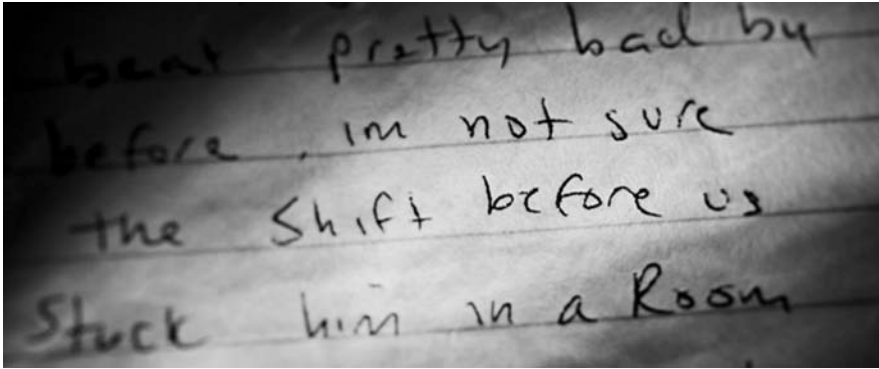 beat pretty bad by
before. im not sure
the Shift before us
Stuck him in a Room